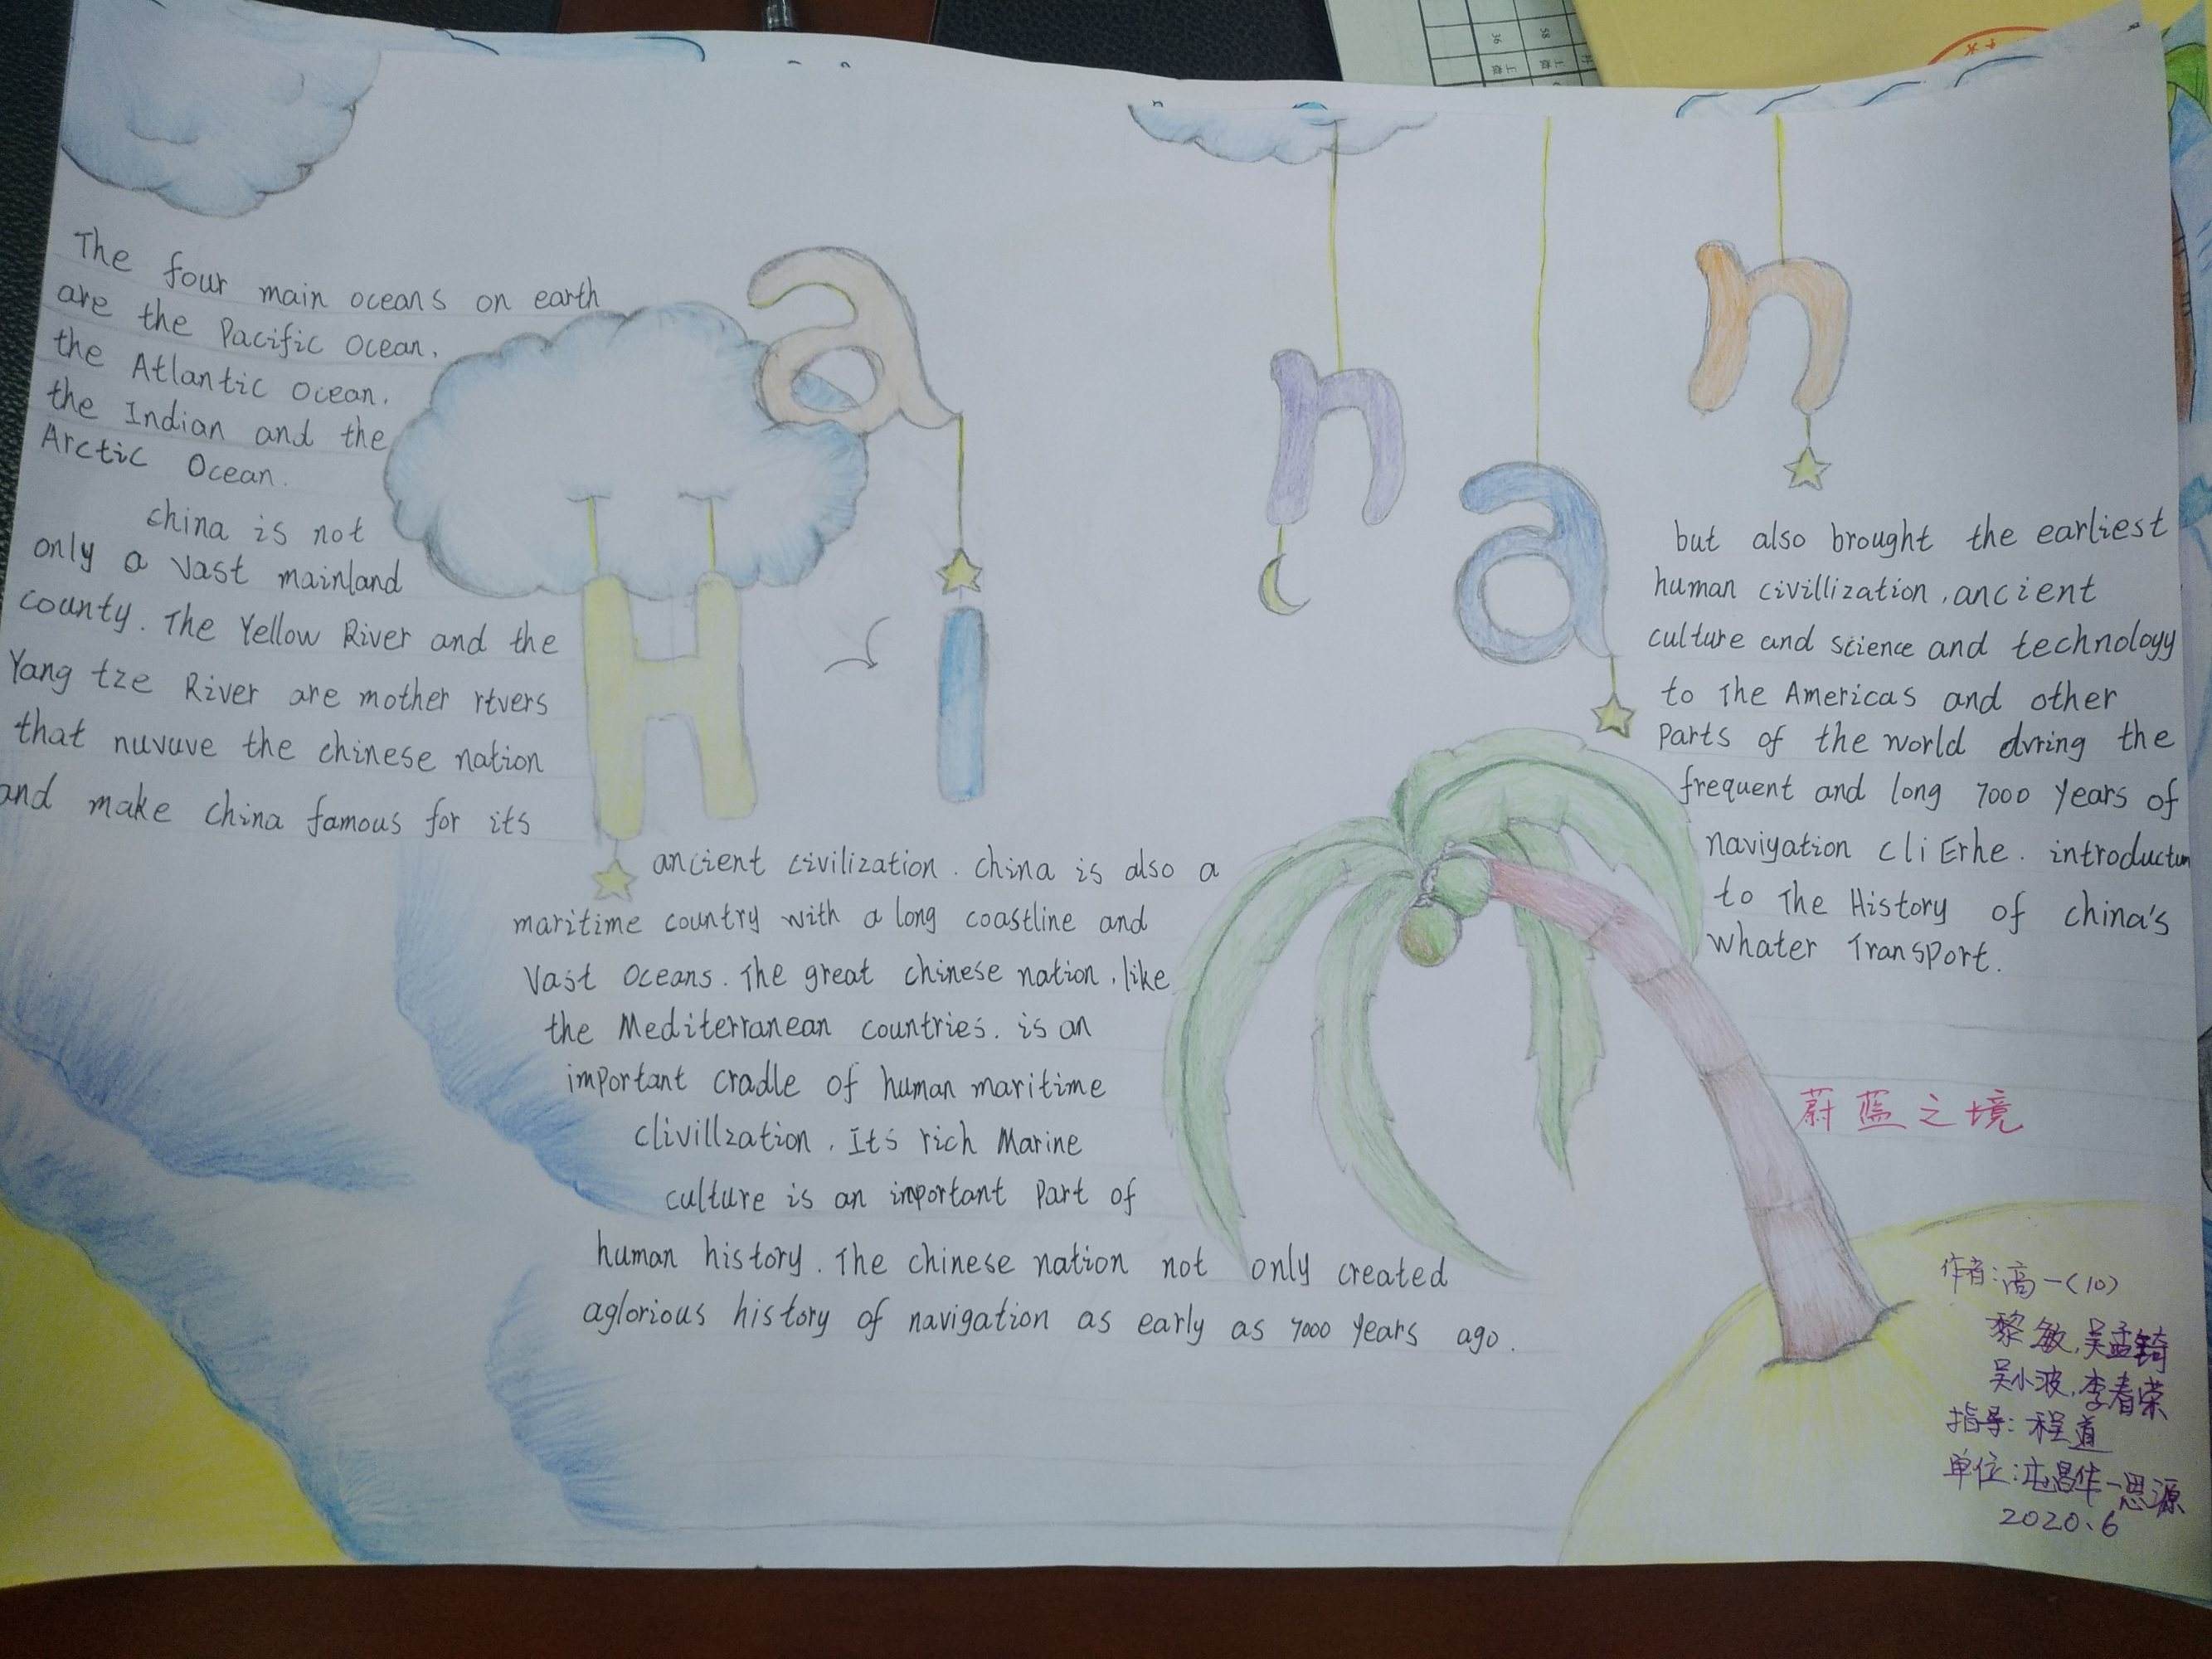 Hainan
The four main oceans on earth
are the Pacific Ocean.
the Atlantic Ocean.
the Indian and the
Arctic Ocean.
china is not
only a vast mainland
county. The Yellow River and the
Yang tze River are mother rtvers
that nuvuve the chinese nation
and make china famous for its
ancient civilization. china is also a
maritime country with a long coastline and
vast oceans. The great chinese nation, like
the Mediterranean countries. is an
important cradle of human maritime
clivillzation. Its rich Marine
culture is an important part of
human history. The chinese nation not only created
aglorious history of navigation as early as 7000 years ago.
but also brought the earliest
human civillization, ancient
culture and science and technology
to The Americas and other
parts of the world dvring the
frequent and long 7000 years of
naviyation cli Erhe. introductun
to The History of china's
whater TransPort.
蔚蓝之境
作者:高一(10)
黎敏,吴孟锜
吴小波,李春荣
指导:程道
单位:屯昌华一思源
2020.6
58
36